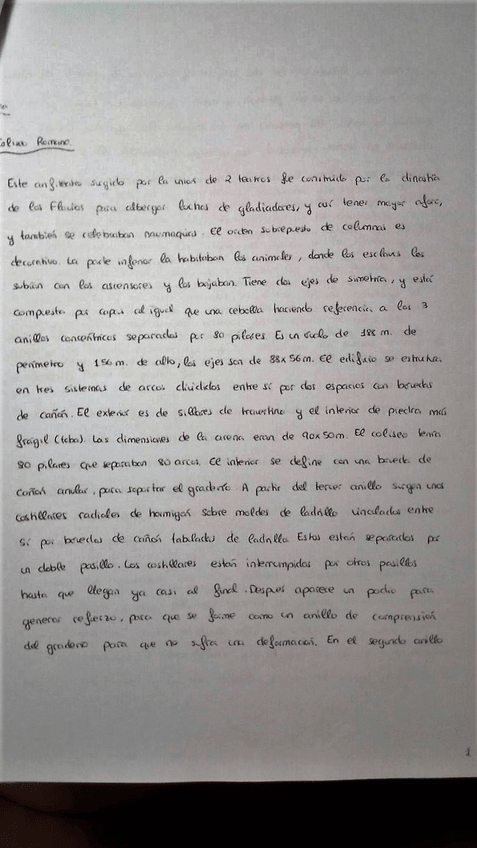 Coliseo Romano.
Este anfiteatro surgido por la union de 2 teatros fue construido por la dinastía
de los Flavios para albergar luchas de gladiadores, y así tener mayor aforo,
y también se celebraban naumaquias. El orden subrepuesto de columnas es
decorativo. La parte inferior la habitaban los animales, donde los esclavos los
subían con los ascensores y los bajaban. Tiene dos ejes de simetría, y está
compuesto por capas al igual que una cebolla haciendo referencia a los 3
anillos concéntricos separados por 80 pilares. Es un óvalo de 188 m. de
perímetro y 156 m. de alto, los ejes son de 88x56m. El edificio se estructura
en tres sistemas de arcos divididos entre sí por dos espacios con bóvedas
de cañón. El exterior es de sillares de travertino y el interior de piedra más
frágil (toba). Las dimensiones de la arena eran de 90x50m. El coliseo tenía
80 pilares que separaban 80 arcos. El interior se define con una bóveda de
cañón anular, para soportar el graderío. A partir del tercer anillo surgen unos
costillares radiales de hormigón sobre moldes de ladrillo vinculados entre
sí por bóvedas de cañón tabulados de ladrillo. Estos están separados por
un doble pasillo. Los costillares están interrumpidos por otros pasillos
hasta que llegan ya casi al final. Después aparece un podio para
generar refuerzo, para que se forme como un anillo de comprensión
del graderío para que no sufra una deformación. En el segundo anillo
1